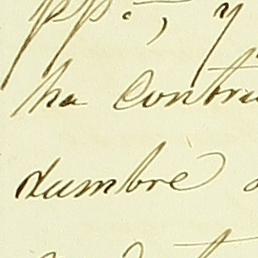 pp.; y
ha contri
dumbre